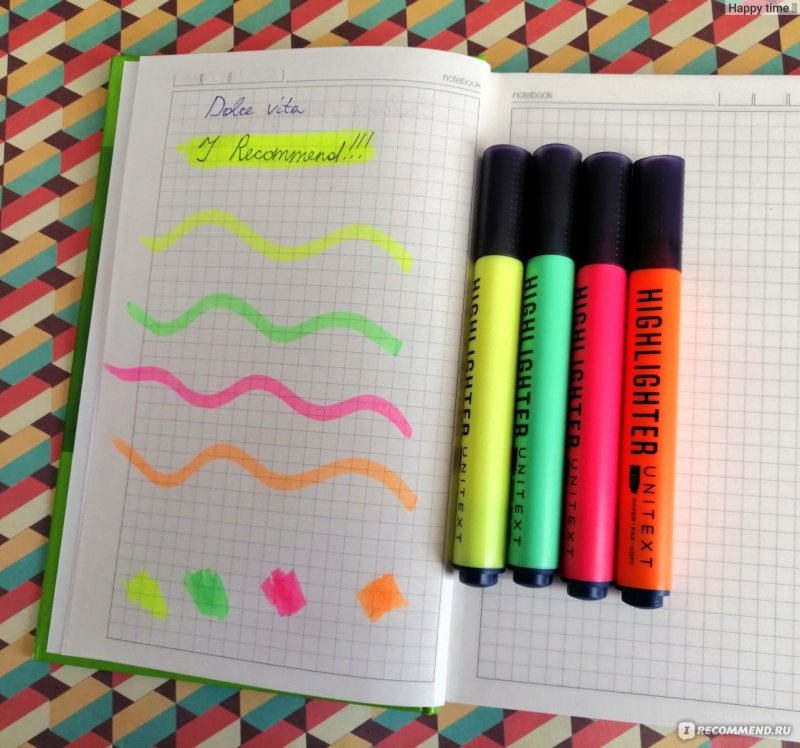 Happy time
notebook
notebook
Dolce vita
I Recommend!!!
HIGHLIGHTER UNITEXT
HIGHLIGHTER UNITEXT
HIGHLIGHTER UNITEXT
HIGHLIGHTER UNITEXT
PAPER • FAX • COPY
IRECOMMEND.RU